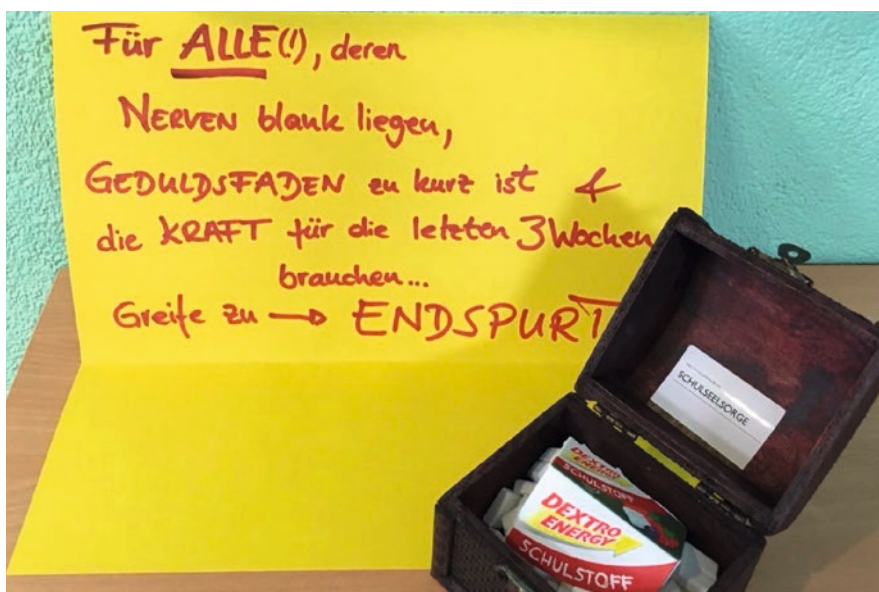 Für ALLE(!), deren
NERVEN blank liegen,
GEDULDSFADEN zu kurz ist &
die KRAFT für die letzten 3 Wochen
brauchen...
Greife zu → ENDSPURT
SCHULSEELSORGE
DEXTRO
ENERGY
SCHULSTOFF
DEXTRO
ENERGY
SCHULSTOFF